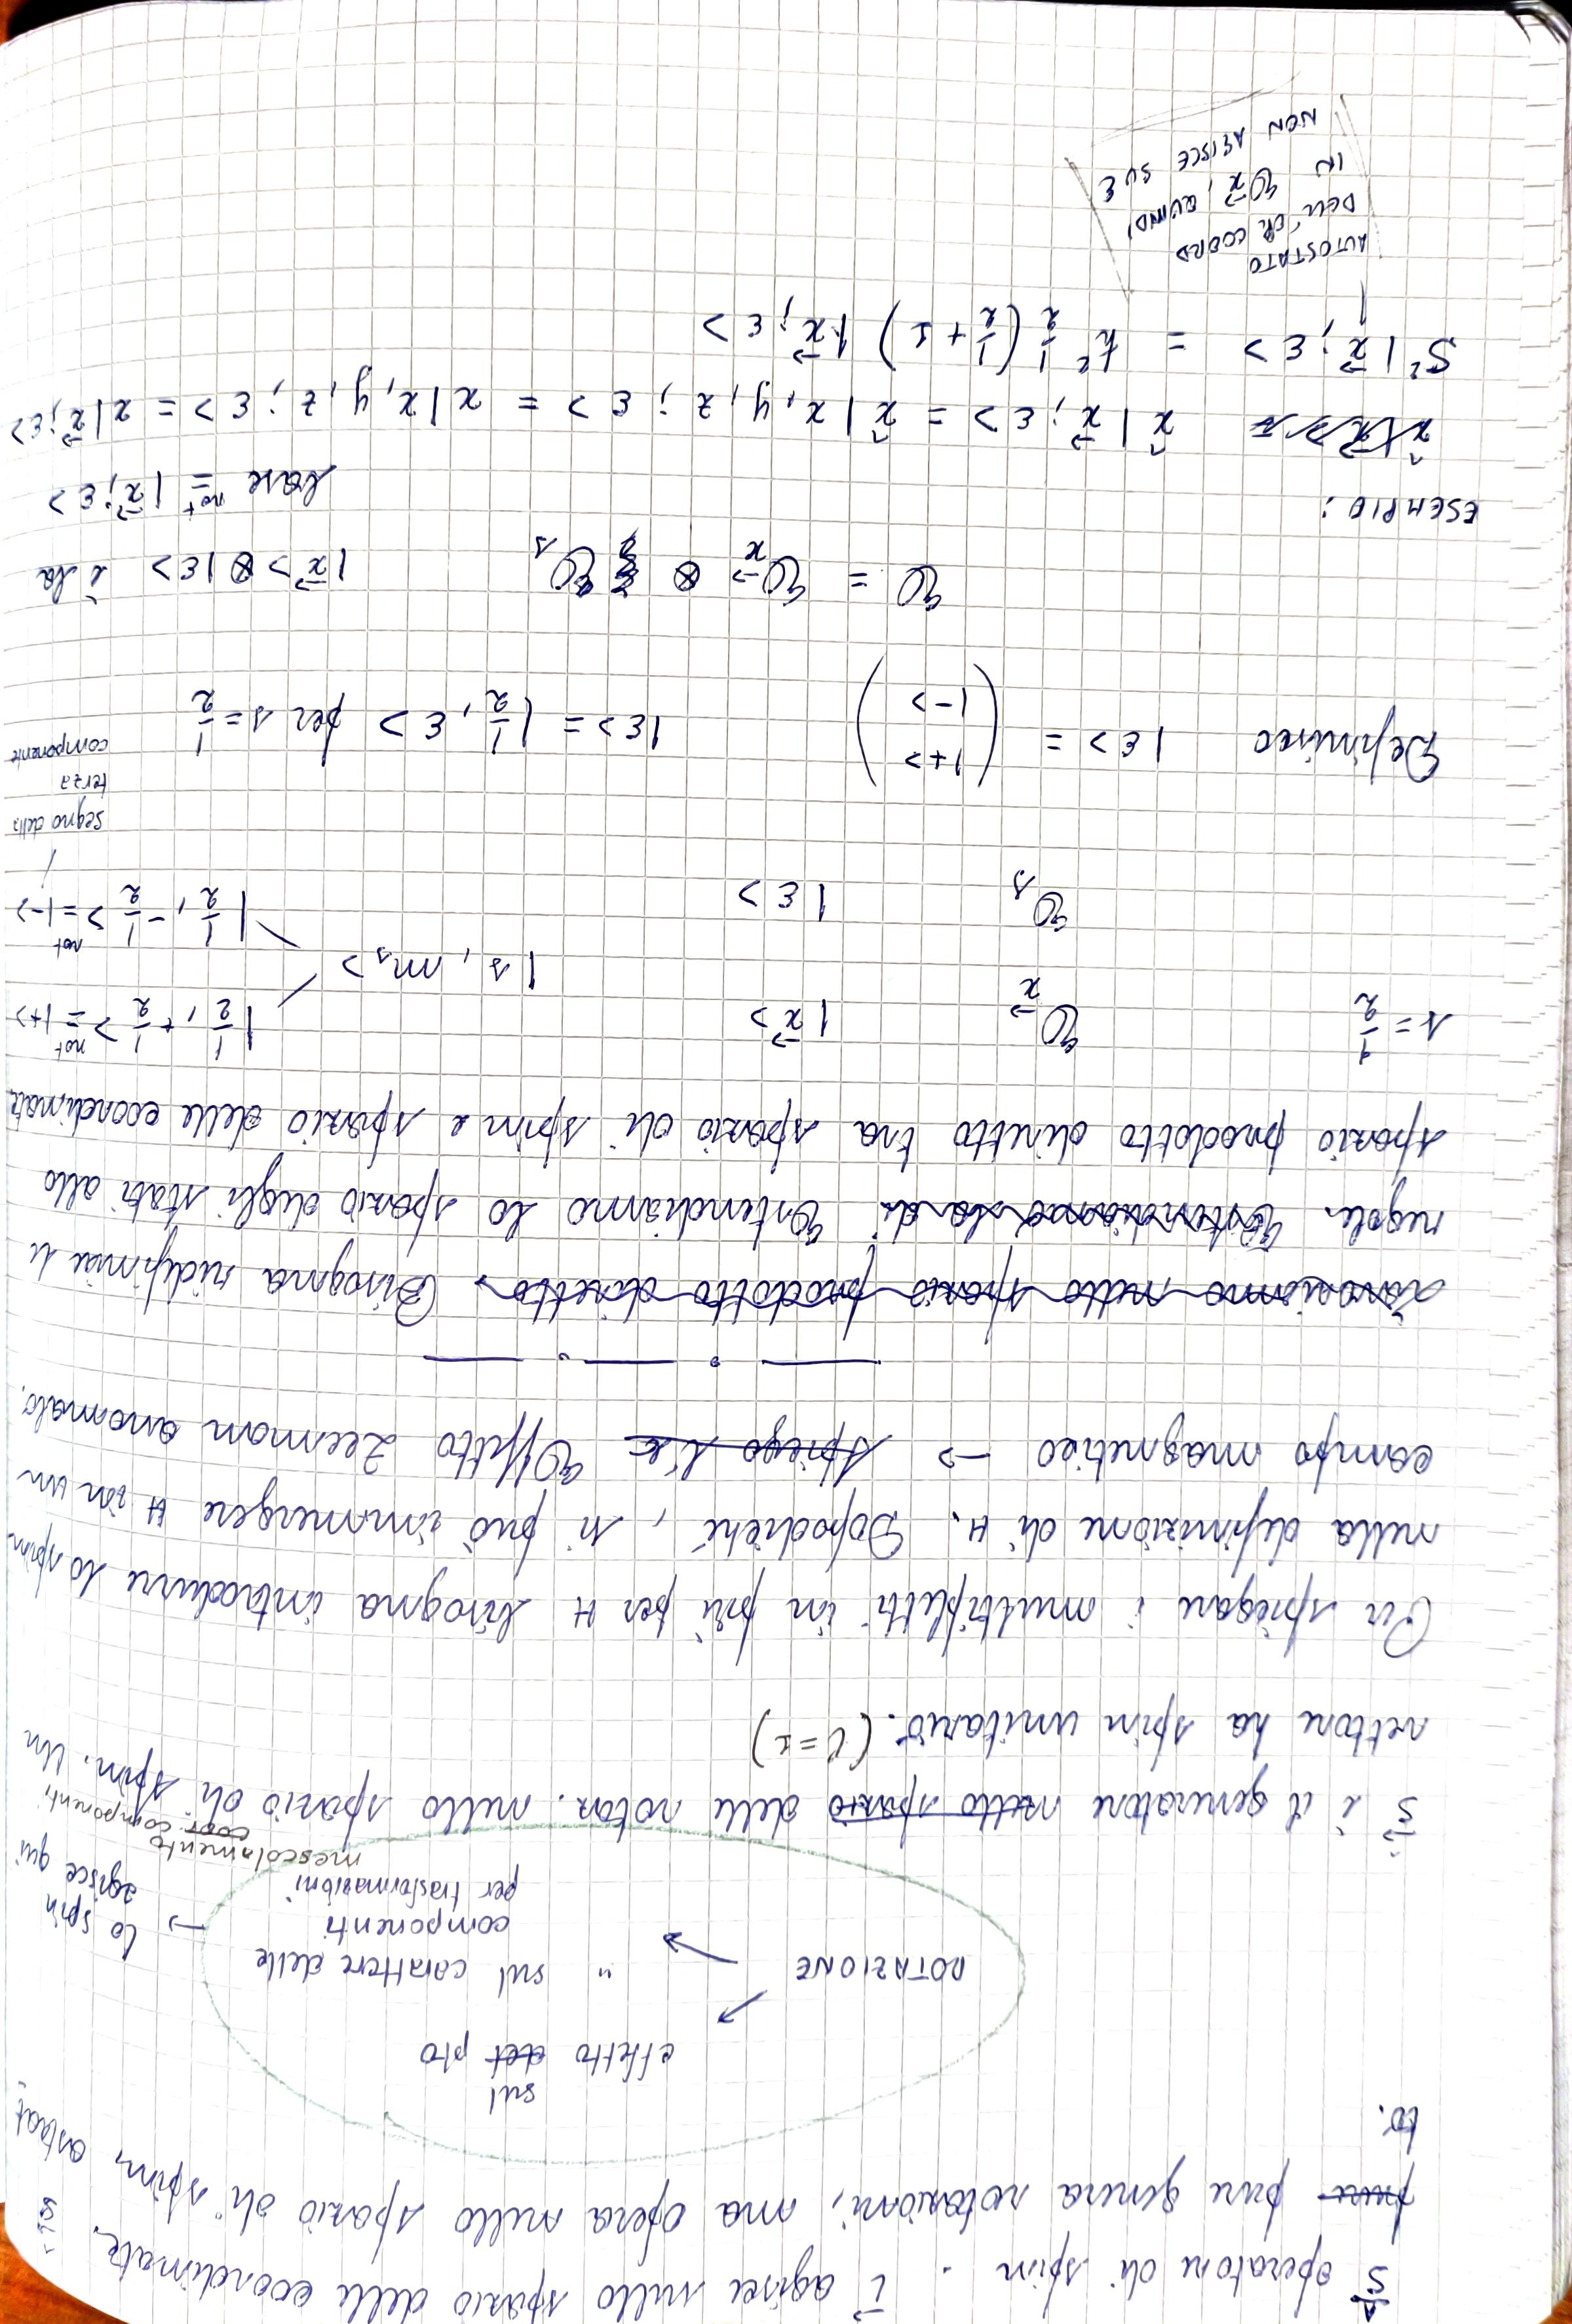 $\hat{\vec{S}}$ operatore di spin. $\vec{l}$ agisce nello spazio delle coordinate. $\hat{\vec{S}}$
~~pure~~ pure genera rotazioni, ma opera nello spazio di spin, astrat-
to.
sul
effetto ~~del~~ pto
ROTAZIONE ↗ ↘
" sul carattere delle
componenti
per trasformazioni
→ lo spin
agisce qui
mescolamento
~~coor.~~ componenti
$\hat{\vec{S}}$ è il generatore ~~nello spazio~~ delle rotaz. nello spazio di spin. Un
vettore ha spin unitario. (l=1)
Per spiegare i multipletti in più per H bisogna introdurre lo spin
nella definizione di H. Dopodiché, si può immergere H in un
campo magnetico → ~~spiego l'e~~ Effetto Zeeman anomalo.
~~Lavoriamo nello spazio prodotto diretto.~~ Bisogna ridefinire le
regole. ~~Estendiamo la di~~ Estendiamo lo spazio degli stati allo
spazio prodotto diretto tra spazio di spin e spazio delle coordinate
$s = \frac{1}{2}$ $\mathcal{E}_{\vec{x}}$ $|\vec{x}>$ $|\frac{1}{2}, +\frac{1}{2}> \overset{not}{=} |+>$
$|s, m_s>$
$\mathcal{E}_s$ $|ε>$ $|\frac{1}{2}, -\frac{1}{2}> \overset{not}{=} |->$
segno della
terza
componente
Definisco $|ε> = \begin{pmatrix} |+> \\ |-> \end{pmatrix}$ $|ε> = |\frac{1}{2}, ε>$ per $s = \frac{1}{2}$
$\mathcal{E} = \mathcal{E}_{\vec{x}} ⊗ \mathcal{E}_s$ $|\vec{x}> ⊗ |ε>$ è la
base $\overset{not}{=} |\vec{x}; ε>$
ESEMPIO:
~~$\hat{x}|\vec{x}> =$~~ $\hat{x}|\vec{x}; ε> = \hat{x}|x, y, z; ε> = x|x, y, z; ε> = x|\vec{x}; ε>$
$S^2|\vec{x}; ε> = ħ^2 \frac{1}{2}(\frac{1}{2} + 1)|\vec{x}; ε>$
AUTOSTATO
DELL'OP. COORD
IN $\mathcal{E}_{\vec{x}}$, QUINDI
NON AGISCE SU ε